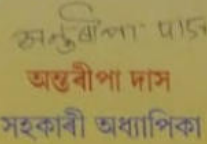 অন্তৰীপা দাস
অন্তৰীপা দাস
সহকাৰী অধ্যাপিকা